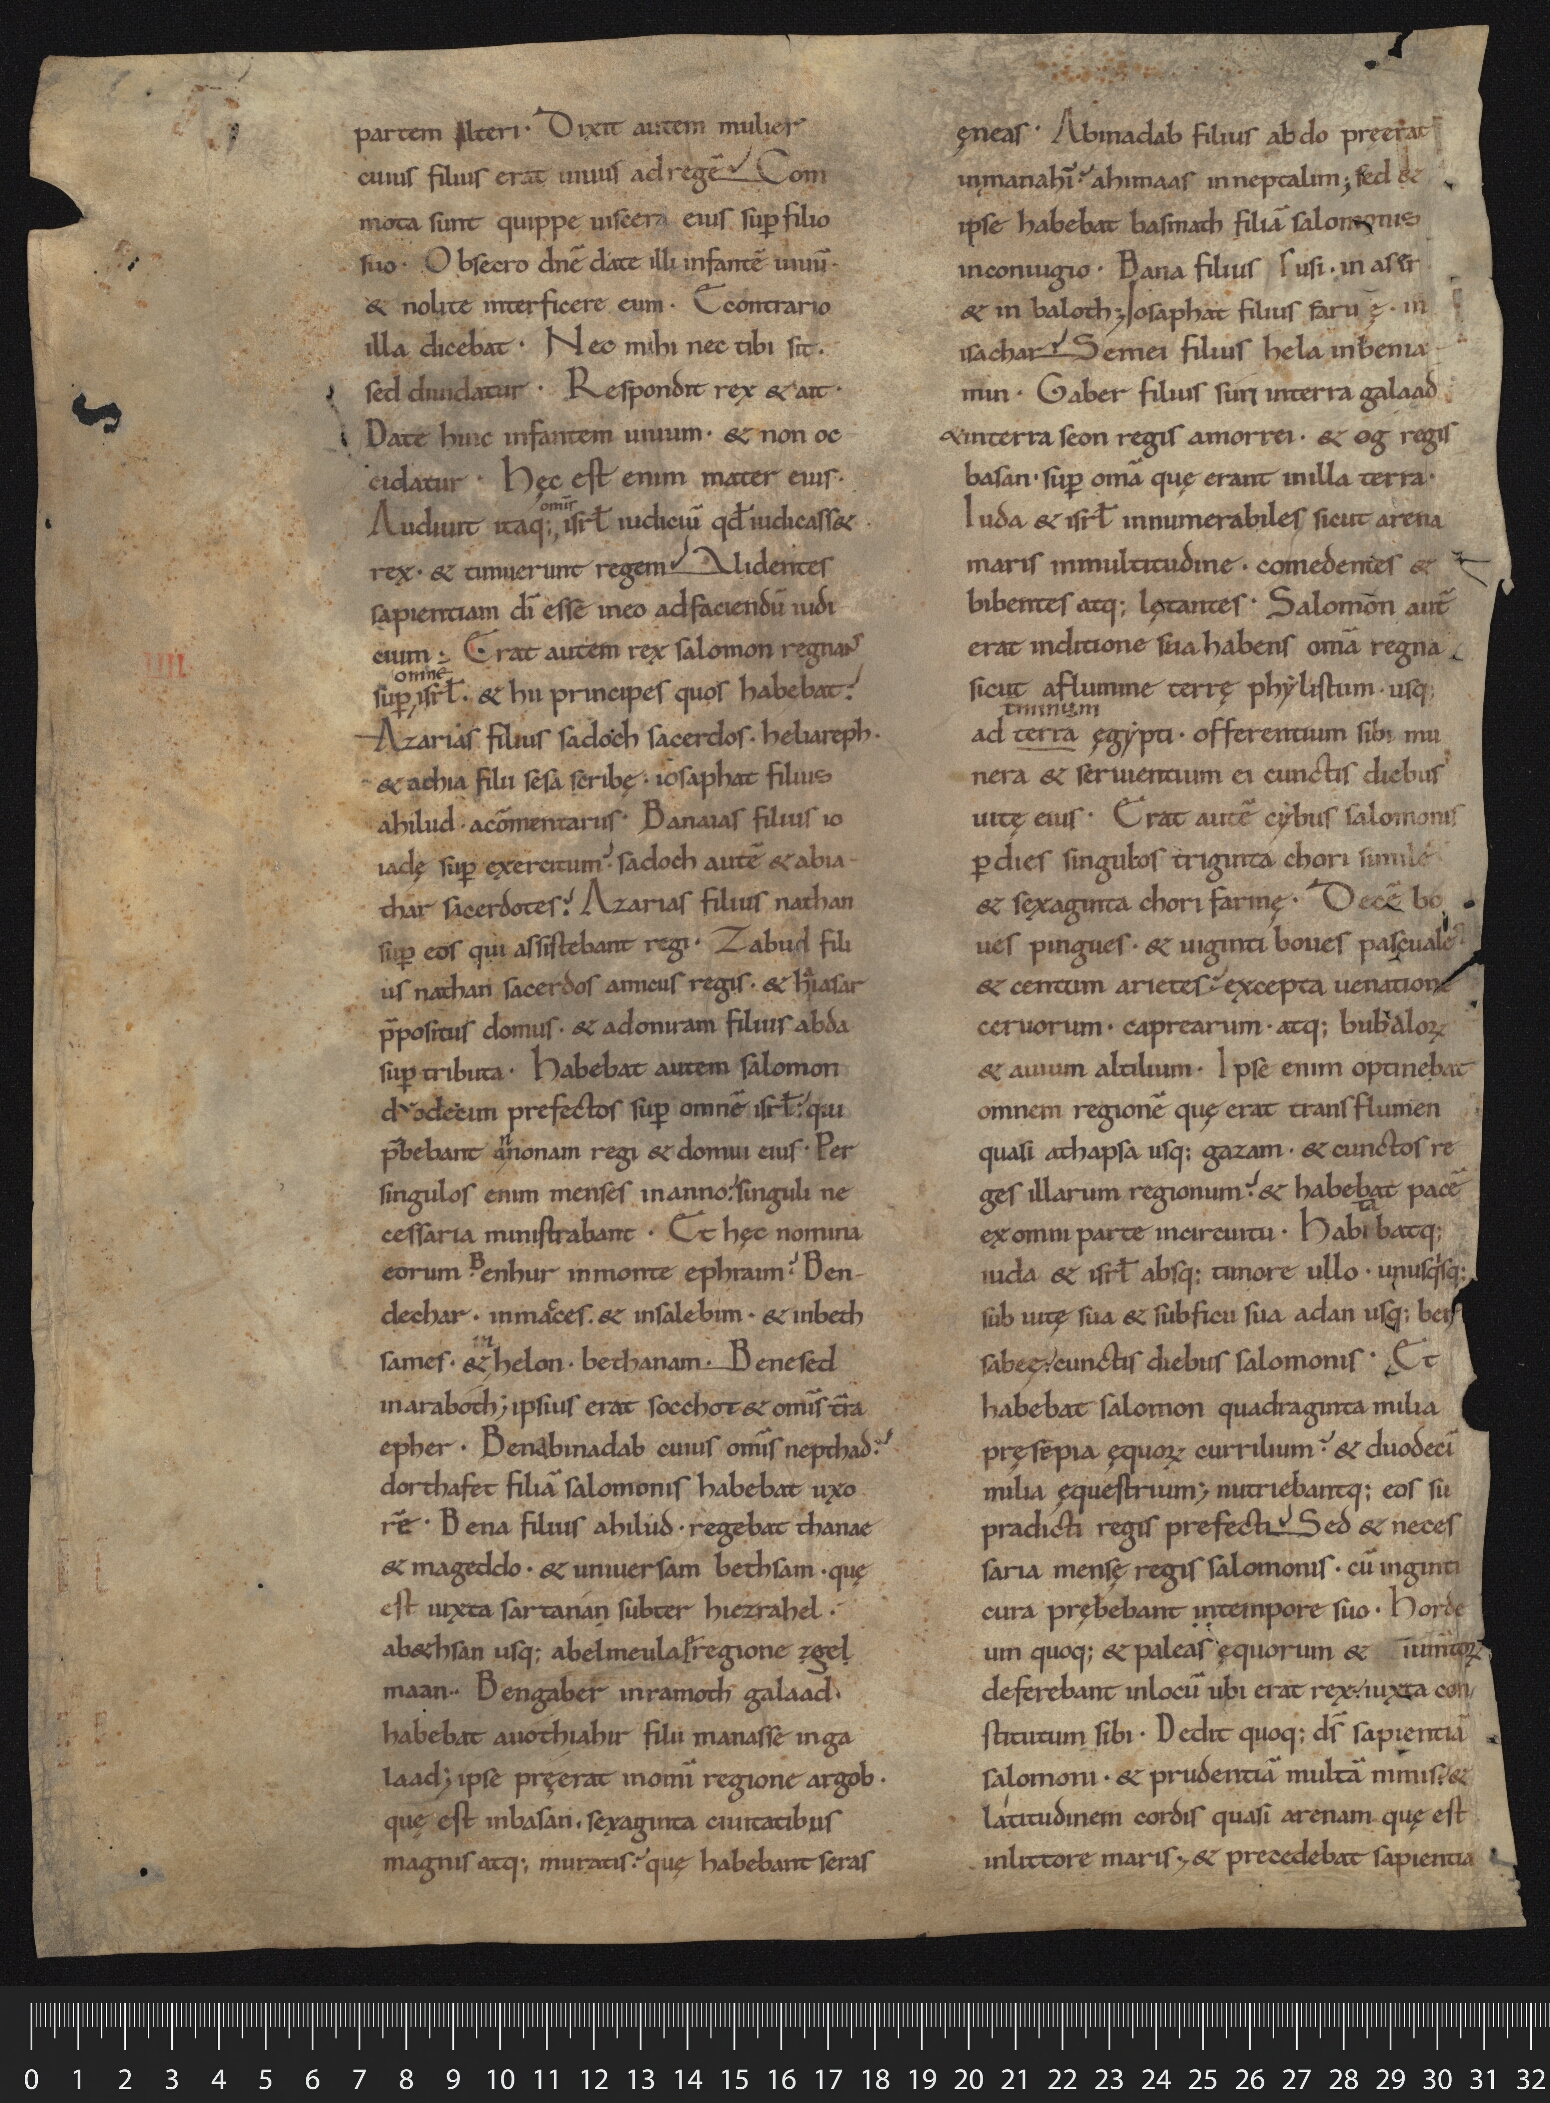 partem alteri· Dixit autem mulier
cuius filius erat uiuus ad regē· Com
mota sunt quippe uiscera eius sup̄ filio
suo· Obsecro dn̄e date illi infantē uiuū·
& nolite interficere eum· Econtrario
illa dicebat· Nec mihi nec tibi sit·
sed diuidatur· Respondit rex & ait·
Date huic infantem uiuum· & non oc
cidatur· hęc est enim mater eius·
omīs
Audiuit itaq;, isrl̄ iudiciū qd̄ iudicass&
rex· & timuerunt regem· Uidentes
sapientiam dī esse in eo ad faciendū iudi
cium· Erat autem rex salomon regnans
omnē
IIII
sup̄, isrl̄· & hii principes quos habebat·
Azarias filius sadoch sacerdos· heliareph·
& achia filii sesa scribę· iosaphat filius
ahilud· a cōmentariis· Banaias filius io
iadę sup̄ exercitum· sadoch autē & abia
thar sacerdotes· Azarias filius nathan
sup̄ eos qui assistebant regi· Zabud fili
us nathan sacerdos amicus regis· & hiasar
p̄positus domus· & adoniram filius abda
sup̄ tributa· habebat autem salomon
duodecim prefectos sup̄ omnē isrl̄· qui
p̄bebant annonam regi & domui eius· Per
singulos enim menses in anno· singuli ne
cessaria ministrabant· Et hęc nomina
eorum· Benhur in monte ephraim· Ben
dechar· in macces· & in salebim· & in beth
in
sames· & helon· bethanam· Benesed
in araboth; ipsius erat socchot & omīs tr̄a
epher· Benabinadab cuius omīs nepthad·
dorthafet filiā salomonis habebat uxo
rē· Bena filius ahilud· regebat thanac
& mageddo· & uniuersam bethsam· quę
est iuxta sartanan subter hiezrahel·
a beths̄an usq; abelmeula regione zgel
maan· Bengaber in ramoth galaad·
habebat auothiahir filii manasse in ga
laad; ipse pręerat in omī regione argob·
quę est in basan· sexaginta ciuitatibus
magnis atq; muratis· quę habebant seras
ęneas· Abinadab filius abdo pręerat
in manahī· ahimaas in neptalim; sed &
ipse habebat basmath filiā salomonis
in coniugio· Bana filius husi· in aser
& in baloth; Iosaphat filius faruę· in
isachar· Semei filius hela in benia
min· Gaber filius suri in terra galaad
& in terra seon regis amorrei· & og regis
basan· sup̄ om̄a quę erant in illa terra·
Iuda & isrl̄ innumerabiles sicut arena
maris in multitudine· comedentes &
bibentes atq; lętantes· Salomon aut̄
erat in ditione sua habens om̄a regna
sicut a flumine terrę phylistum· usq;
terminum
ad terra egypti· offerentium sibi mu
nera & seruientium ei cunctis diebus
uitę eius· Erat autē cybus salomonis
p̄ dies singulos triginta chori similę
& sexaginta chori farinę· Decē bo
ues pingues· & uiginti boues pascuales
& centum arietes· excepta uenatione
ceruorum· caprearum· atq; bubaloꝝ
& auium altilium· Ipse enim optinebat
omnem regionē quę erat trans flumen
quasi a thapsa usq; gazam· & cunctos re
ges illarum regionum· & habebat pacē
ta
ex omni parte in circuitu· habi batq;
iuda & isrl̄ absq; timore ullo· unusq'sq;
sub uite sua & sub ficu sua a dan usq; ber
sabeę· cunctis diebus salomonis· Et
habebat salomon quadraginta milia
pręsepia ęquoꝝ currilium· & duodecī
milia ęquestrium; nutriebantq; eos su
pradicti regis prefecti· Sed & neces
saria mensę regis salomonis· cū ingenti
cura pręhebant in tempore suo· horde
um quoq; & paleas equorum & iumtoꝝ
deferebant in locū ubi erat rex· iuxta con
stitutum sibi· Dedit quoq; ds̄ sapientiā
salomoni· & prudentiā multā nimis· &
latitudinem cordis quasi arenam quę est
in littore maris· & precedebat sapientia